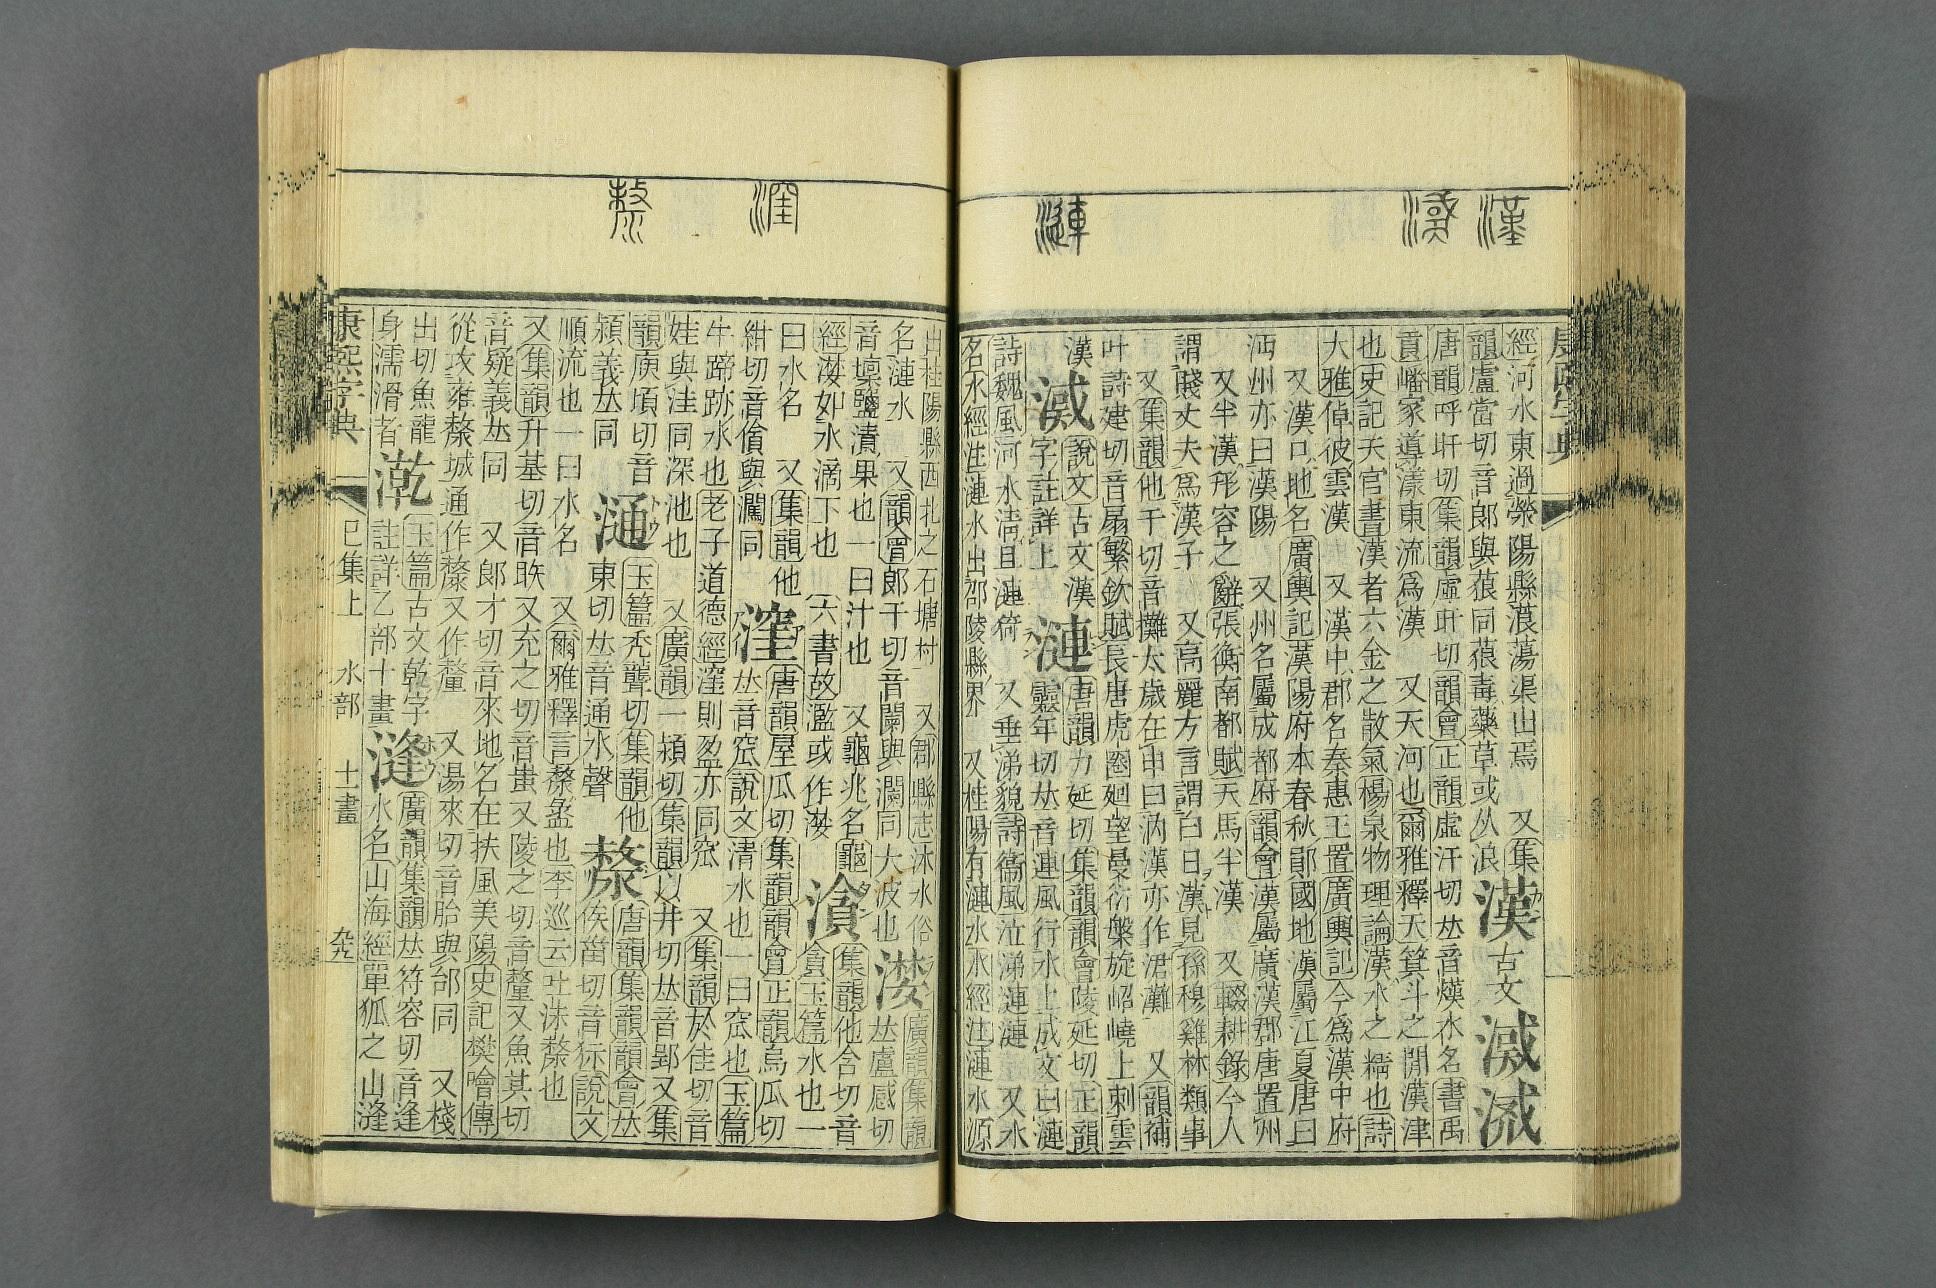 漢
漣
經河水東過滎陽縣蒗蕩渠出焉 又集
韻盧當切音郎與蒗同蒗毒藥草或从浪
漢 古文
唐韻呼旰切集韻虛旰切韻會正韻虛汗切𠀤音熯水名書禹
貢嶓冢導漾東流爲漢 又天河也爾雅釋天箕斗之閒漢津
也史記天官書漢者亦金之散氣楊泉物理論漢水之精也詩
大雅倬彼雲漢 又漢中郡名秦惠王置廣輿記今爲漢中府
又漢口地名廣輿記漢陽府本春秋鄖國地漢屬江夏唐曰
沔州亦曰漢陽 又州名屬成都府韻會漢屬廣漢郡唐置州
又半漢形容之辭張衡南都賦天馬半漢 又輟耕錄今人
謂賤丈夫爲漢子 又高麗方言謂白曰漢見孫穆雞林類事
又集韻他干切音攤太歲在申曰汭漢亦作涒灘 又韻補
叶詩建切音扇繁欽賦長唐虎圈迴望曼衍槃旋岹嶢上刺雲
漢
說文古文漢
字註詳上
漣
唐韻力延切集韻韻會陵延切正韻
靈年切𠀤音連風行水上成文曰漣
詩魏風河水淸且漣猗 又垂涕貌詩衞風泣涕漣漣 又水
名水經注漣水出邵陵縣界 又桂陽有漣水水經注漣水源
漥
漦
出桂陽縣西北之石塘村 又郡縣志沭水俗
名漣水 又韻會郞干切音闌與瀾同大波也
漤
廣韻集韻
𠀤盧感切
音壈鹽漬果也一曰汁也 又龜兆名龜
經漤如水滴下也 六書故濫或作漤
滄
集韻他含切音
貪玉篇水也一
曰水名 又集韻他
紺切音僋與灍同
漥
唐韻屋瓜切集韻韻會正韻烏瓜切
𠀤音窊說文淸水也一曰窊也玉篇
牛蹄跡水也老子道德經漥則盈亦同窊 又集韻於佳切音
娃與洼同深池也 又廣韻一熲切集韻以井切𠀤音郢又集
韻庾頃切音
熲義𠀤同
㵌
玉篇禿聾切集韻他
東切𠀤音通水聲
漦
唐韻集韻韻會𠀤
俟甾切音㹝說文
順流也一曰水名 又爾雅釋言漦盝也李巡云吐沫漦也
又集韻升基切音眣又充之切音蚩又陵之切音釐又魚其切
音疑義𠀤同 又郞才切音來地名在扶風美陽史記樊噲傳
從攻雍漦城通作斄又作釐 又湯來切音胎與邰同 又棧
出切魚龍
身濡滑者
漧
玉篇古文乾字
註詳乙部十畫
漨
廣韻集韻𠀤符容切音逢
水名山海經單狐之山漨
康熙字典 巳集上 水部 十一畫